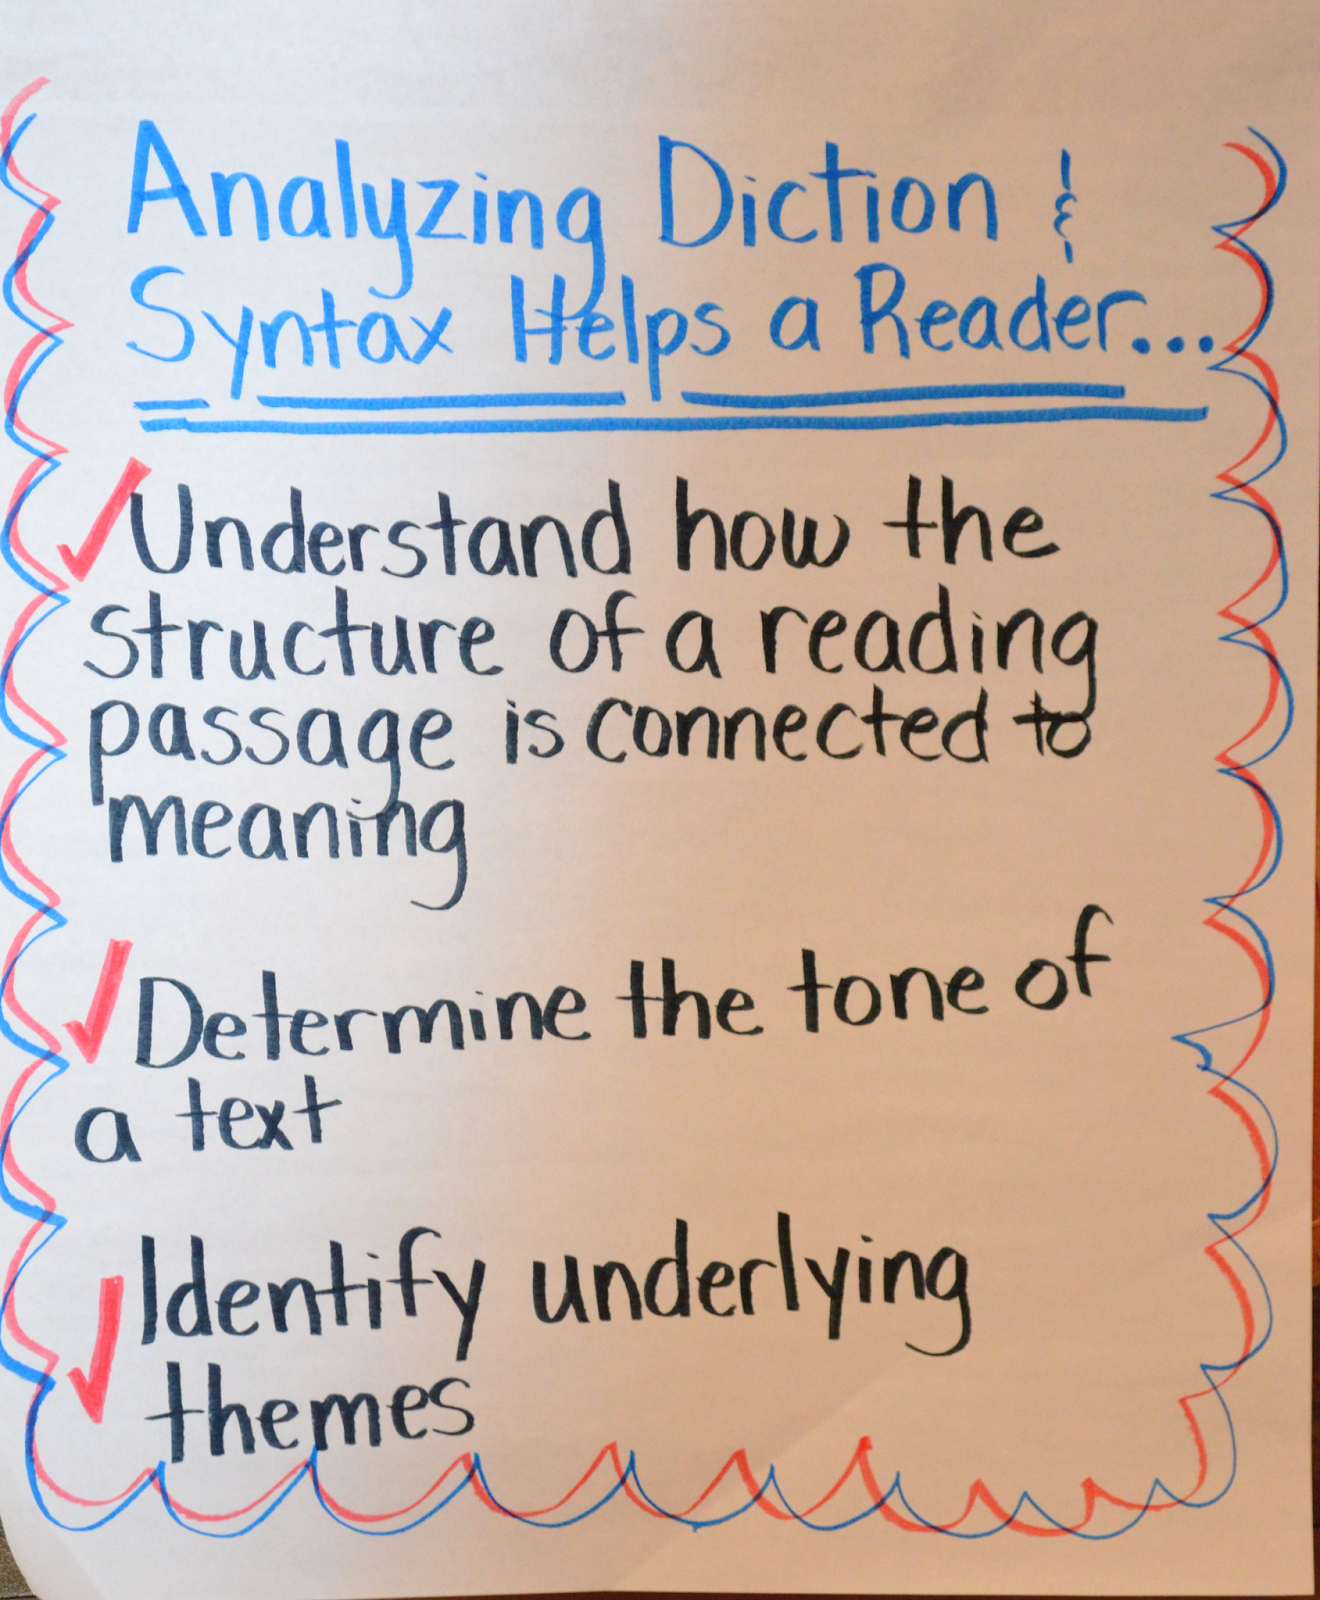 Analyzing Diction &
Syntax Helps a Reader...
✓Understand how the
structure of a reading
passage is connected to
meaning
✓Determine the tone of
a text
✓Identify underlying
themes